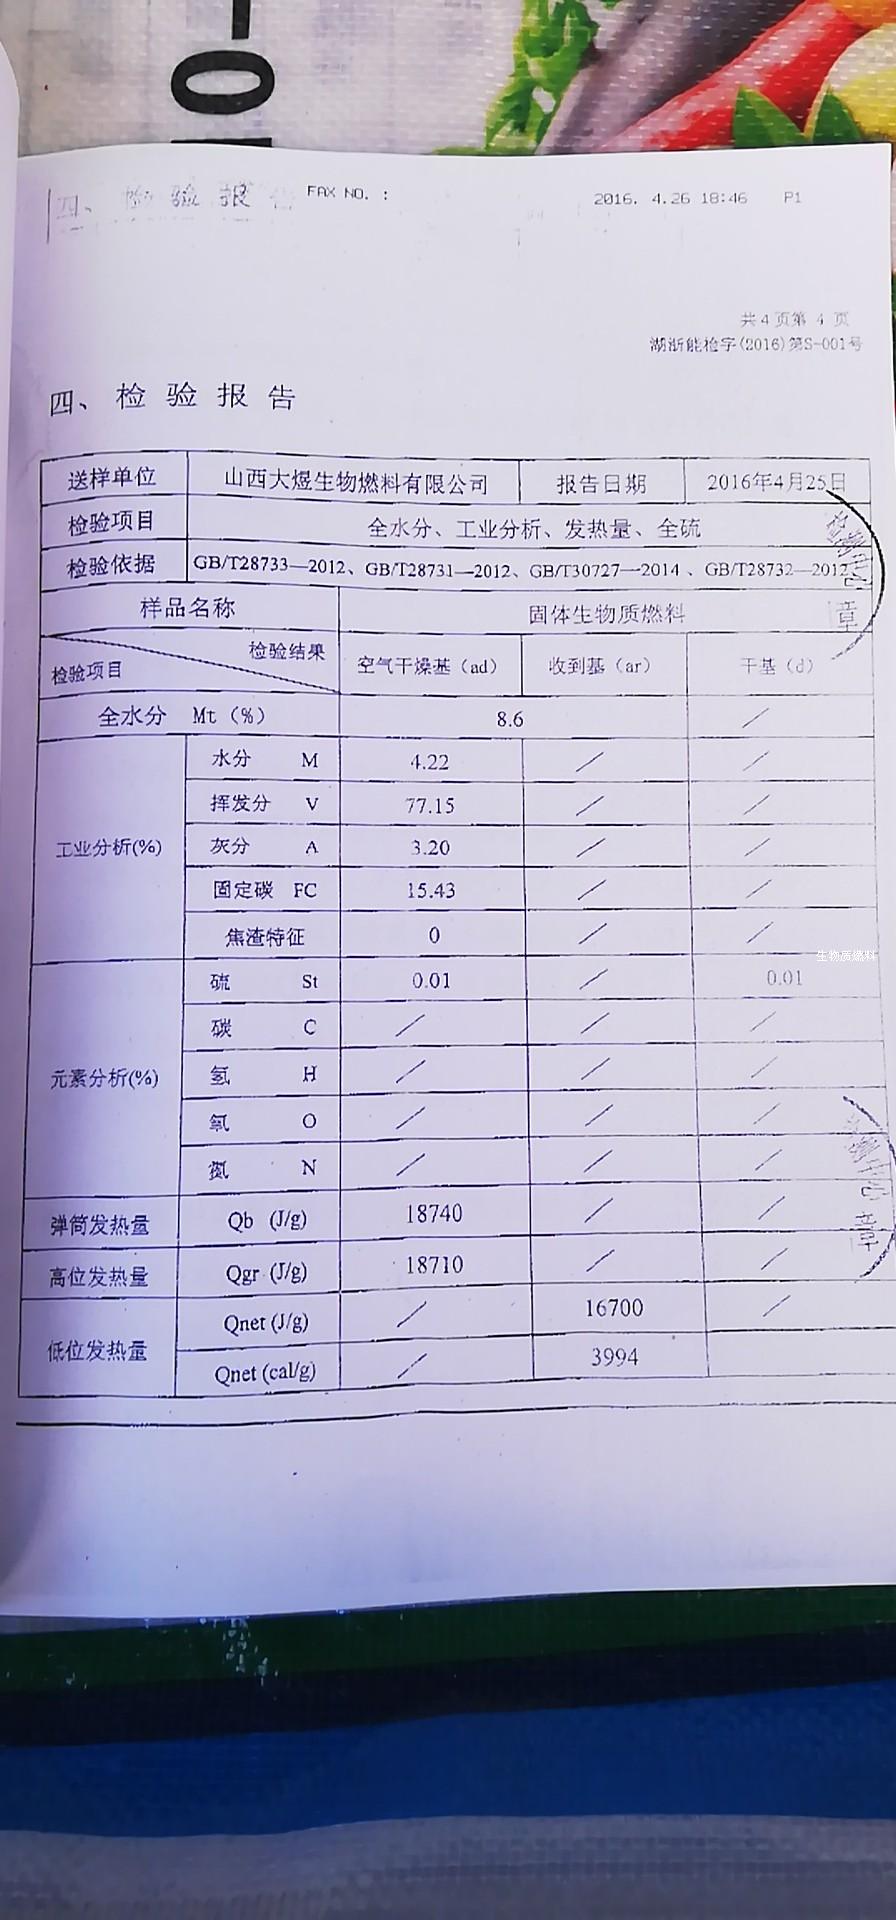 0-
四、检验报告 FAX NO. : 2016. 4.26 18:46 P1
共4页第 4 页
湖浙能检字(2016)第S-001号
四、检验报告
送样单位 山西大煜生物燃料有限公司 报告日期 2016年4月25日
检验项目 全水分、工业分析、发热量、全硫
检验依据 GB/T28733—2012、GB/T28731—2012、GB/T30727—2014 、GB/T28732—2012
样品名称 固体生物质燃料
检验结果
检验项目 空气干燥基（ad） 收到基（ar） 干基（d）
全水分 Mt（%） 8.6 ／
工业分析(%)
水分 M 4.22 ／ ／
挥发分 V 77.15 ／ ／
灰分 A 3.20 ／ ／
固定碳 FC 15.43 ／ ／
焦渣特征 0 ／ ／
生物质燃料
元素分析(%)
硫 St 0.01 ／ 0.01
碳 C ／ ／ ／
氢 H ／ ／ ／
氧 O ／ ／ ／
氮 N ／ ／ ／
弹筒发热量 Qb (J/g) 18740 ／ ／
高位发热量 Qgr (J/g) 18710 ／ ／
低位发热量
Qnet (J/g) ／ 16700 ／
Qnet (cal/g) ／ 3994
检测中心
章
检测中心
章